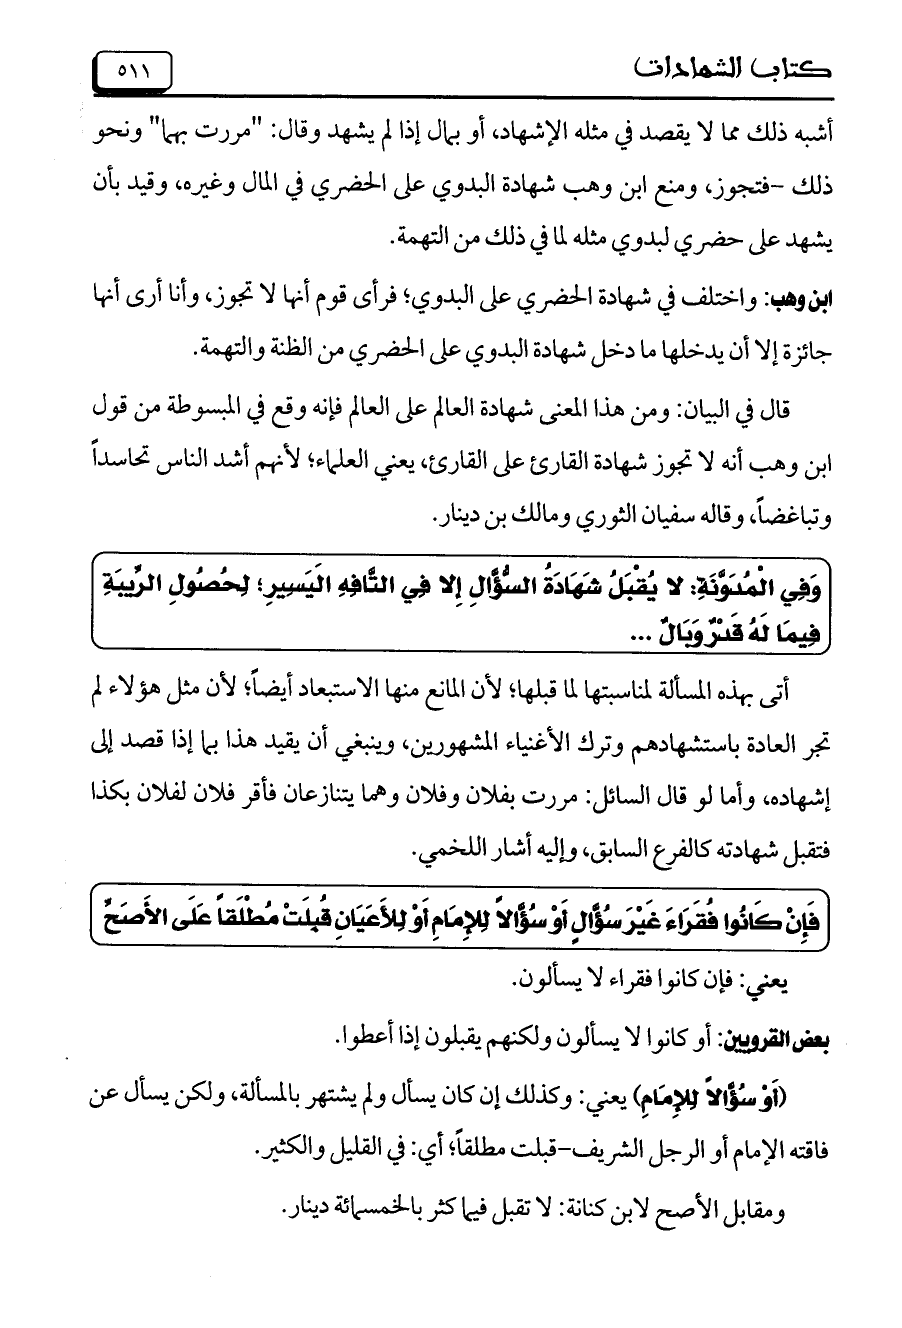 كتاب الشهادات
٥١١
أشبه ذلك مما لا يقصد في مثله الإشهاد، أو بمال إذا لم يشهد وقال: "مررت بهما" ونحو
ذلك -فتجوز، ومنع ابن وهب شهادة البدوي على الحضري في المال وغيره، وقيد بأن
يشهد على حضري لبدوي مثله لما في ذلك من التهمة.
ابن وهب: واختلف في شهادة الحضري على البدوي؛ فرأى قوم أنها لا تجوز، وأنا أرى أنها
جائزة إلا أن يدخلها ما دخل شهادة البدوي على الحضري من الظنة والتهمة.
قال في البيان: ومن هذا المعنى شهادة العالم على العالم فإنه وقع في المبسوطة من قول
ابن وهب أنه لا تجوز شهادة القارئ على القارئ، يعني العلماء؛ لأنهم أشد الناس تحاسداً
وتباغضاً، وقاله سفيان الثوري ومالك بن دينار.
وَفِي الْمُدَوَّنَةِ: لا يُقْبَلُ شَهَادَةُ السُّؤَّالِ إِلا فِي التَّافِهِ الْيَسِيرِ؛ لِحُصُولِ الرِّيبَةِ
فِيمَا لَهُ قَدْرٌ وَبَالٌ ...
أتى بهذه المسألة لمناسبتها لما قبلها؛ لأن المانع منها الاستبعاد أيضاً؛ لأن مثل هؤلاء لم
تجر العادة باستشهادهم وترك الأغنياء المشهورين، وينبغي أن يقيد هذا بما إذا قصد إلى
إشهاده، وأما لو قال السائل: مررت بفلان وفلان وهما يتنازعان فأقر فلان لفلان بكذا
فتقبل شهادته كالفرع السابق، وإليه أشار اللخمي.
فَإِنْ كَانُوا فُقَرَاءَ غَيْرَ سُؤَّالٍ أَوْ سُؤَّالاً لِلإِمَامِ أَوْ لِلأَعْيَانِ قُبِلَتْ مُطْلَقاً عَلَى الأَصَحِّ
يعني: فإن كانوا فقراء لا يسألون.
بعض القرويين: أو كانوا لا يسألون ولكنهم يقبلون إذا أعطوا.
(أَوْ سُؤَّالاً لِلإِمَامِ) يعني: وكذلك إن كان يسأل ولم يشتهر بالمسألة، ولكن يسأل عن
فاقته الإمام أو الرجل الشريف-قبلت مطلقاً؛ أي: في القليل والكثير.
ومقابل الأصح لابن كنانة: لا تقبل فيما كثر بالخمسمائة دينار.